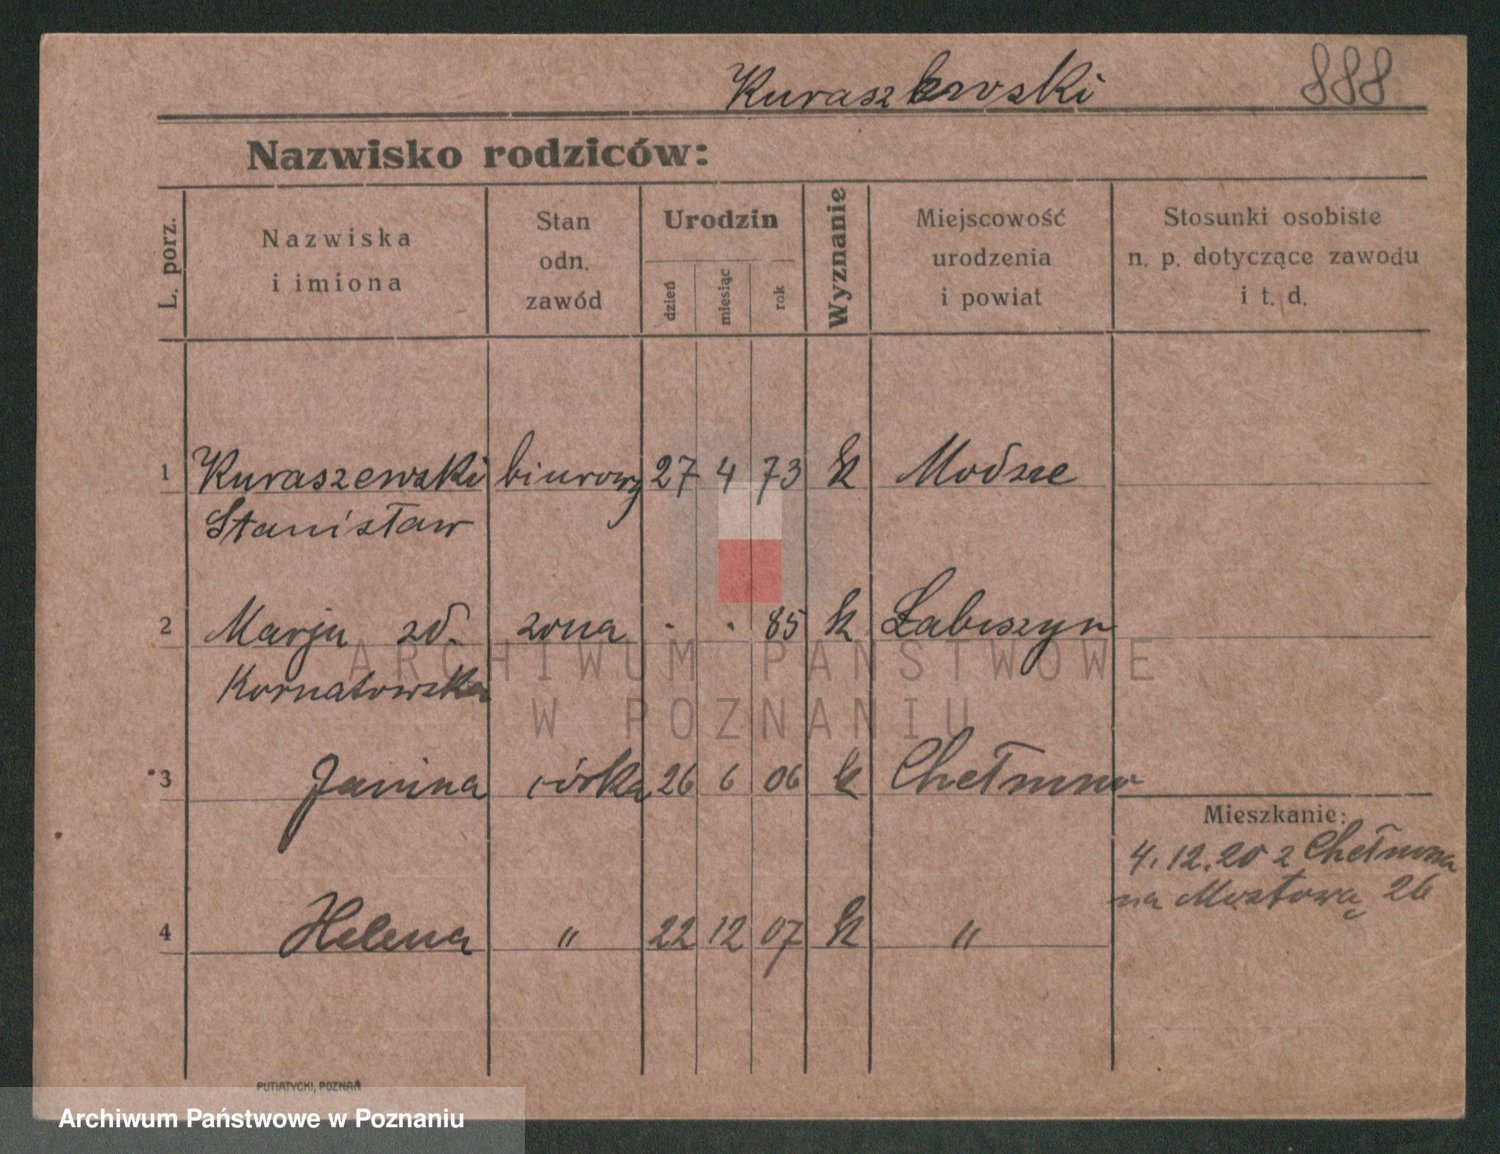 Kuraszewski 888
Nazwisko rodziców:
L. porz.
Nazwiska
i imiona
Stan
odn.
zawód
Urodzin
dzień
miesiąc
rok
Wyznanie
Miejscowość
urodzenia
i powiat
Stosunki osobiste
n. p. dotyczące zawodu
i t. d.
1 Kuraszewski biurowy 27 4 73 k Modrze
Stanisław
2 Marja zd. zona . . 85 k Łabiszyn
Kornatowska
3 Janina córka 26 6 06 k Chełmno
Mieszkanie:
4.12.20 z Chełmna
na Mostową 26
4 Helena " 22 12 07 k "
PUTIATYCKI, POZNAŃ
ARCHIWUM PAŃSTWOWE
W POZNANIU
Archiwum Państwowe w Poznaniu